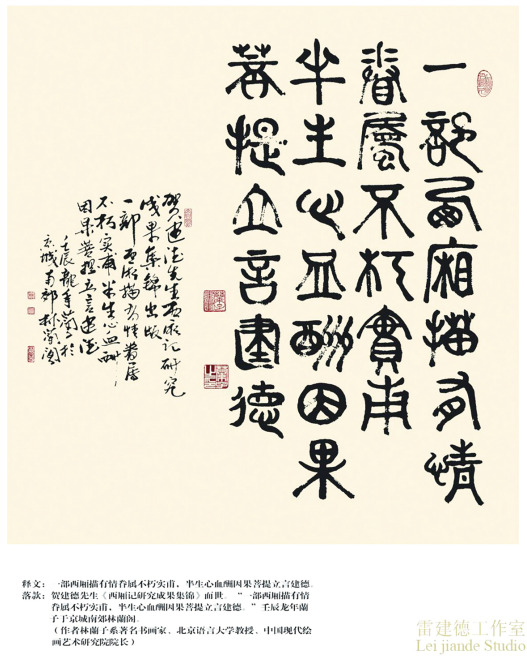 一部西厢描有情
眷属不朽實甫
半生心血酬因果
菩提立言建德
贺建德先生西厢记研究
成果集锦出版
一部西厢描有情眷属
不朽实甫半生心血酬
因果菩提立言建德
壬辰龙年蘭子於
京城南郊林蘭阁
释文： 一部西厢描有情眷属不朽实甫，半生心血酬因果菩提立言建德。
落款：贺建德先生《西厢记研究成果集锦》面世。“一部西厢描有情
眷属不朽实甫，半生心血酬因果菩提立言建德。”壬辰龙年蘭
子于京城南郊林蘭阁。
（作者林蘭子系著名书画家、北京语言大学教授、中国现代绘
画艺术研究院院长）
雷建德工作室
Lei jiande Studio